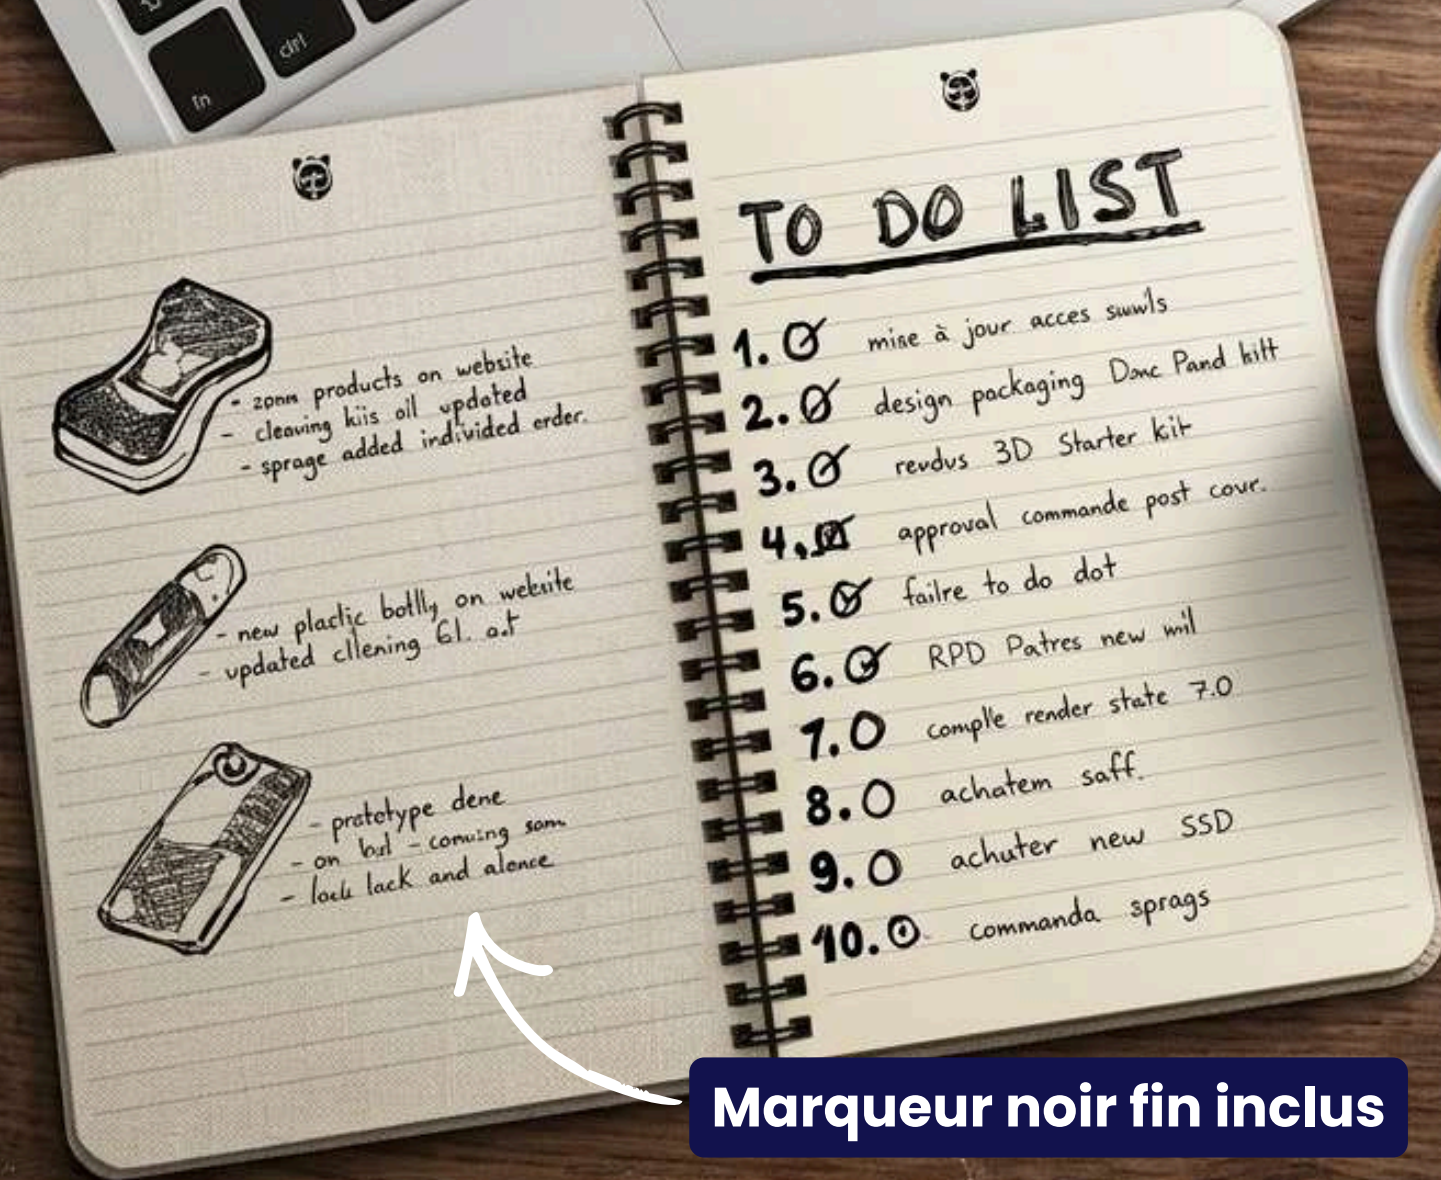 fn
ctrl
- zpnn products on website
- cleaving kiis oil updated
- sprage added individed erder.
- new plactic botlly on website
- updated cllening 61. a.t
- prototype dene
- on bul - comuing som
- lock lack and alence
TO DO LIST
1. mise à jour acces
2. design packaging Danc Pand kilt
3. revdus 3D Starter kit
4. approval commande post cour.
5. failre to do dot
6. RPD Patres new mil
7. comple render state 7.0
8. achatem saff.
9. achuter new SSD
10. commanda sprags
Marqueur noir fin inclus